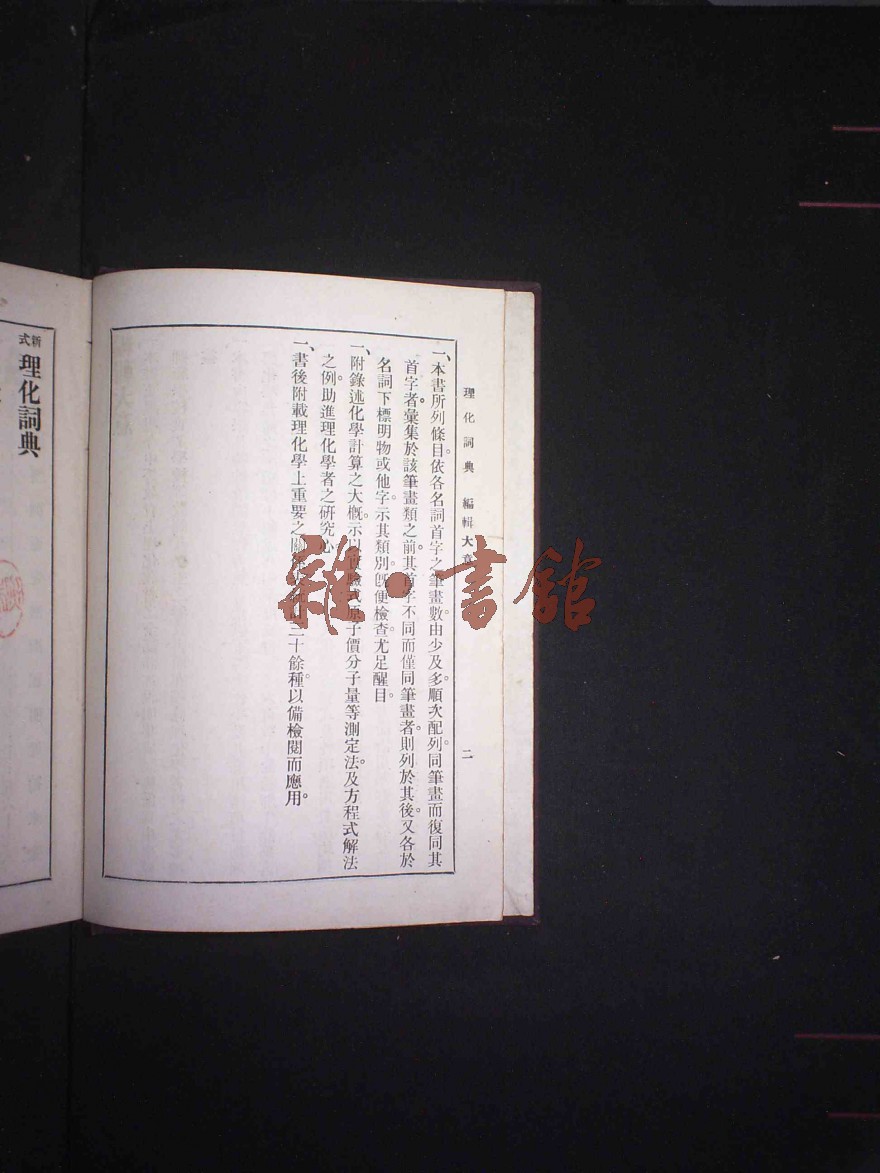 理化詞典 編輯大意 二
一、本書所列條目。依各名詞首字之筆畫數。由少及多。順次配列。同筆畫而復同其
首字者。彙集於該筆畫類之前。其首字不同而僅同筆畫者。則列於其後。又各於
名詞下標明物或他字。示其類別。旣便檢查。尤足醒目。
一、附錄述化學計算之大槪。示以實驗式原子價分子量等測定法。及方程式解法
之例。助進理化學者之研究心
一、書後附載理化學上重要之 三十餘種。以備檢閱而應用。
新式
理化詞典
雜·書館